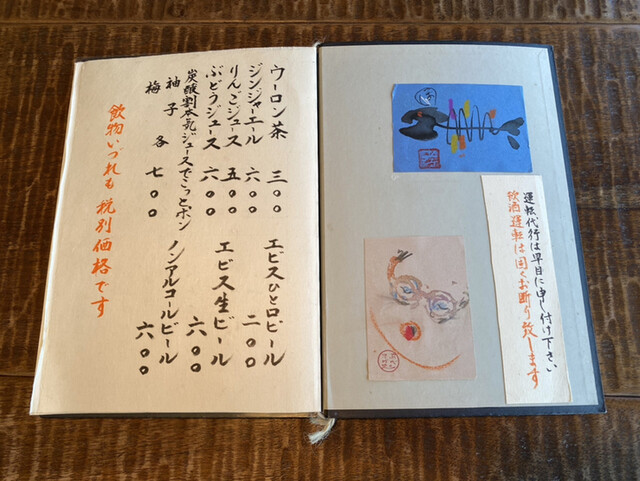 運転代行は早目に申し付け下さい
飲酒運転は固くお断り致します
ウーロン茶 三〇〇
ジンジャエール 六〇〇
りんごジュース 五〇〇
ぶどうジュース 六〇〇
炭酸割本気ジュースでこっとポン
柚子
梅 各 七〇〇
エビスひと口ビール 二〇〇
エビス生ビール 六〇〇
ノンアルコールビール 六〇〇
飲物いづれも 税別価格です